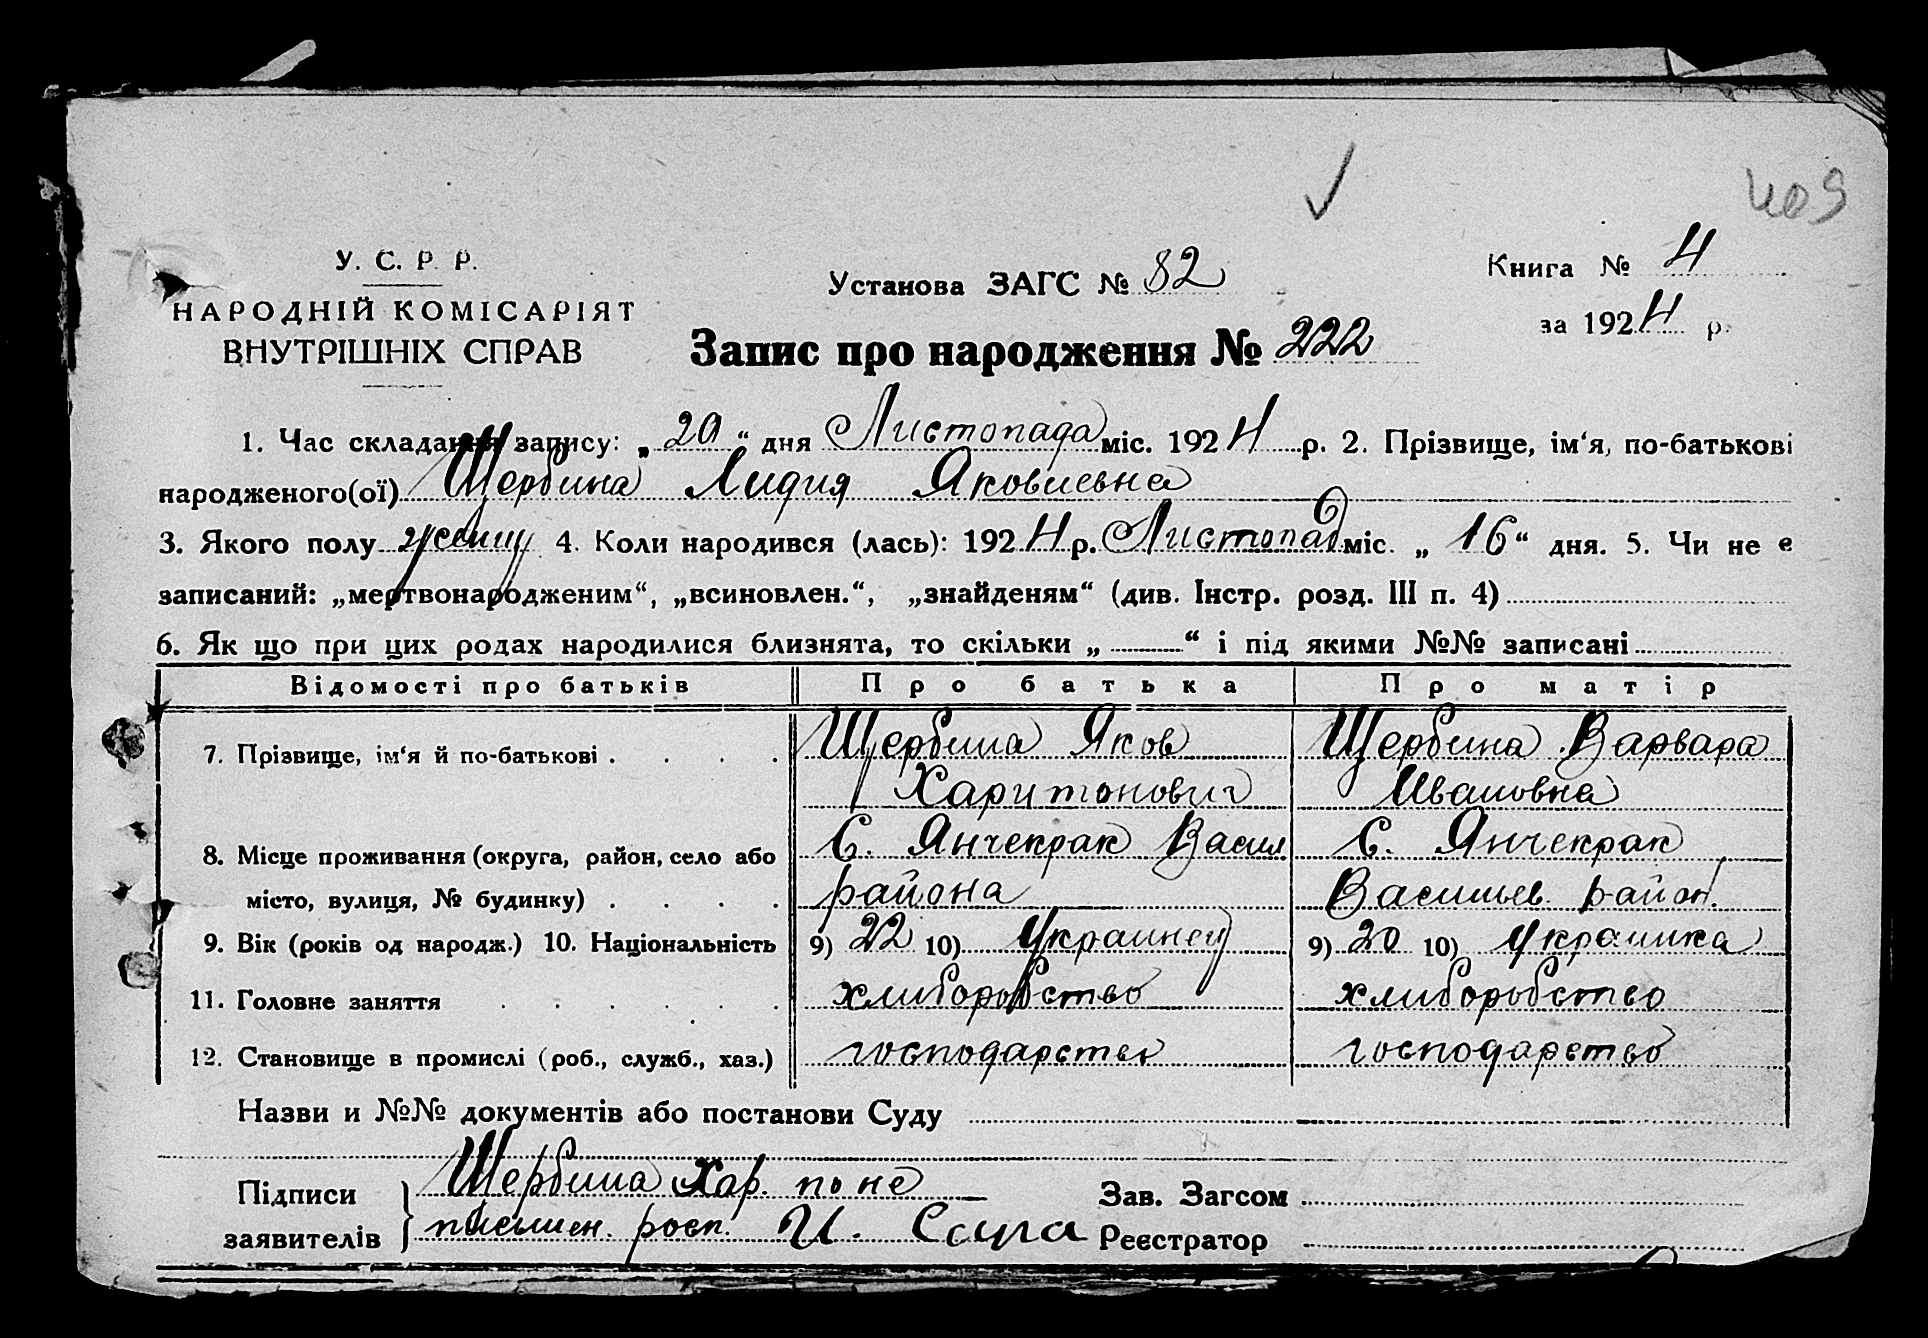 409
У. С. Р. Р.
НАРОДНІЙ КОМІСАРІЯТ
ВНУТРІШНІХ СПРАВ
Установа ЗАГС № 82
Книга № 4
за 1924 р.
Запис про народження № 222
1. Час складання запису: „20“ дня Листопада міс. 1924 р. 2. Прізвище, ім‘я, по-батькові
народженого(ої) Щербина Лидия Яковлевна
3. Якого полу 4. Коли народився (лась): 1924 р. Листопад міс. „16“ дня. 5. Чи не є
записаний: „мертвонародженим“, „всиновлен.“, „знайденям“ (див. Інстр. розд. III п. 4)
6. Як що при цих родах народилися близнята, то скільки „ “ і під якими №№ записані
Відомості про батьків Про батька Про матір
7. Прізвище, ім‘я й по-батькові . . . . Щербина Яков Щербина Варвара
Харитонович Ивановна
8. Місце проживання (округа, район, село або С. Янчекрак Васил С. Янчекрак
місто, вулиця, № будинку) . . . . района Васильев. район.
9. Вік (років од народж.) 10. Національність 9) 22 10) Украинец 9) 20 10) Украинка
11. Головне заняття . . . . . . хлиборобство хлиборобство
12. Становище в промислі (роб., служб., хаз.) господарство господарство
Назви и №№ документів або постанови Суду
Підписи Щербина Хар. по не Зав. Загсом
заявителів письмен. росп. И. Реєстратор